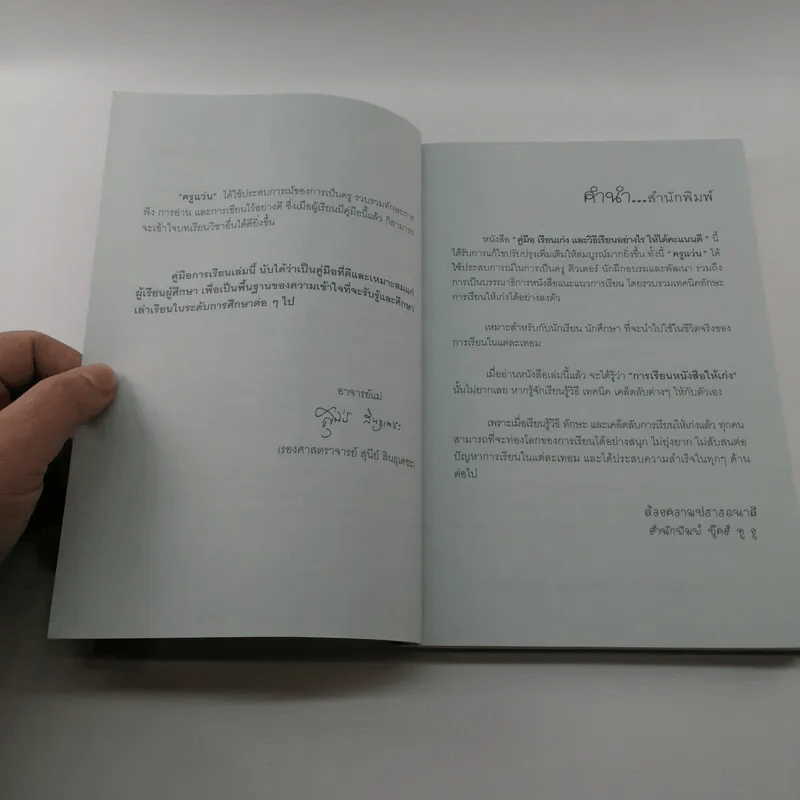 "ครูแว่น" ได้ใช้ประสบการณ์ของการเป็นครู รวบรวมทักษะการ
ฟัง การอ่าน และการเขียนไว้อย่างดี ซึ่งเมื่อผู้เรียนมีคู่มือนี้แล้ว ก็สามารถ
จะเข้าใจบทเรียนวิชาอื่นได้ดียิ่งขึ้น
คู่มือการเรียนเล่มนี้ นับได้ว่าเป็นคู่มือที่ดีและเหมาะสมแก่
ผู้เรียนผู้ศึกษา เพื่อเป็นพื้นฐานของความเข้าใจที่จะรับรู้และศึกษา
เล่าเรียนในระดับการศึกษาต่อ ๆ ไป
อาจารย์แม่
(รองศาสตราจารย์ สุนีย์ สินธุเดชะ)
คำนำ...สำนักพิมพ์
หนังสือ "คู่มือ เรียนเก่ง และวิธีเรียนอย่างไร ให้ได้คะแนนดี" นี้
ได้รับการแก้ไขปรับปรุงเพิ่มเติมให้สมบูรณ์มากยิ่งขึ้น ทั้งนี้ "ครูแว่น" ได้
ใช้ประสบการณ์ในการเป็นครู ติวเตอร์ นักฝึกอบรมและพัฒนา รวมถึง
การเป็นบรรณาธิการหนังสือแนะแนวการเรียน โดยรวบรวมเทคนิคทักษะ
การเรียนให้เก่งได้อย่างลงตัว
เหมาะสำหรับกับนักเรียน นักศึกษา ที่จะนำไปใช้ในชีวิตจริงของ
การเรียนในแต่ละเทอม
เมื่ออ่านหนังสือเล่มนี้แล้ว จะได้รู้ว่า "การเรียนหนังสือให้เก่ง"
นั้นไม่ยากเลย หากรู้จักเรียนรู้วิธี เทคนิค เคล็ดลับต่างๆ ให้กับตัวเอง
เพราะเมื่อเรียนรู้วิธี ทักษะ และเคล็ดลับการเรียนให้เก่งแล้ว ทุกคน
สามารถที่จะท่องโลกของการเรียนได้อย่างสนุก ไม่ยุ่งยาก ไม่สับสนต่อ
ปัญหาการเรียนในแต่ละเทอม และได้ประสบความสำเร็จในทุกๆ ด้าน
ต่อไป
ด้วยความปรารถนาดี
สำนักพิมพ์ บุ๊คส์ ทู ยู